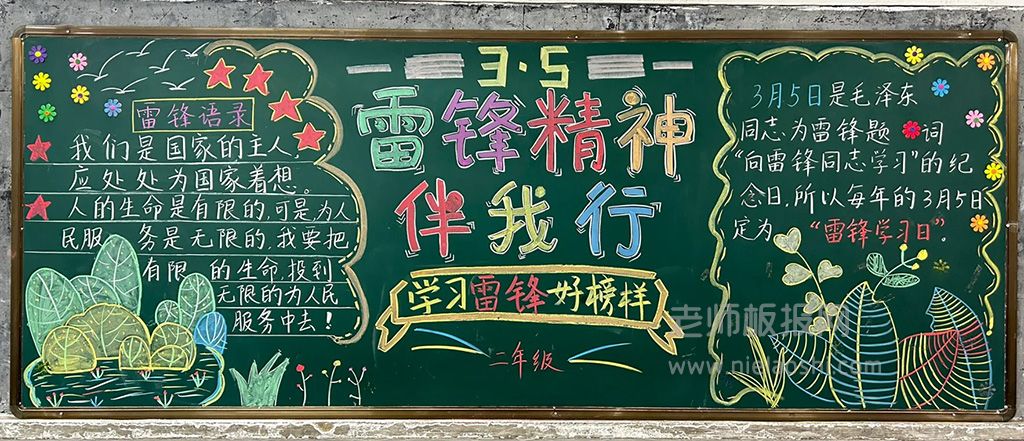 3·5
雷锋精神
伴我行
学习雷锋好榜样
二年级
雷锋语录
我们是国家的主人,
应处处为国家着想。
人的生命是有限的,可是为人
民服务是无限的,我要把
有限的生命,投到
无限的为人民
服务中去!
3月5日是毛泽东
同志为雷锋题词
“向雷锋同志学习”的纪
念日,所以每年的3月5日
定为“雷锋学习日”。
老师板报网
www.nielaoshi.com